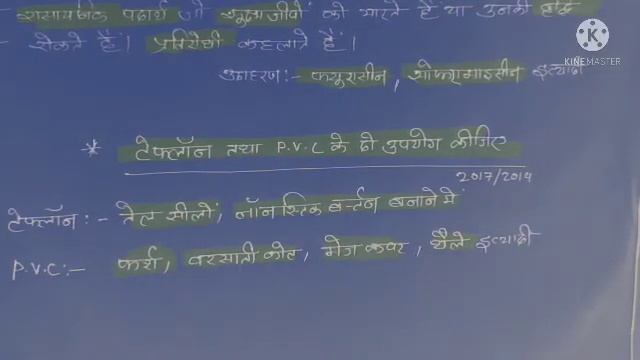 रासायनिक पदार्थ जो सूक्ष्मजीवों को मारते हैं या उनकी वृद्धि
रोकते हैं। प्रतिरोधी कहलाते हैं।
KINEMASTER
उदाहरण:- फ्यूरासीन, सोफ्रामाइसीन इत्यादी
* टेफ्लॉन तथा P.V.C के दो उपयोग लीजिए
2017/2019
टेफ्लॉन:- तेल सीलों, नॉनस्टिक बर्तन बनाने में
P.V.C:- फर्श, बरसाती कोट, मेज कवर, थैले इत्यादी